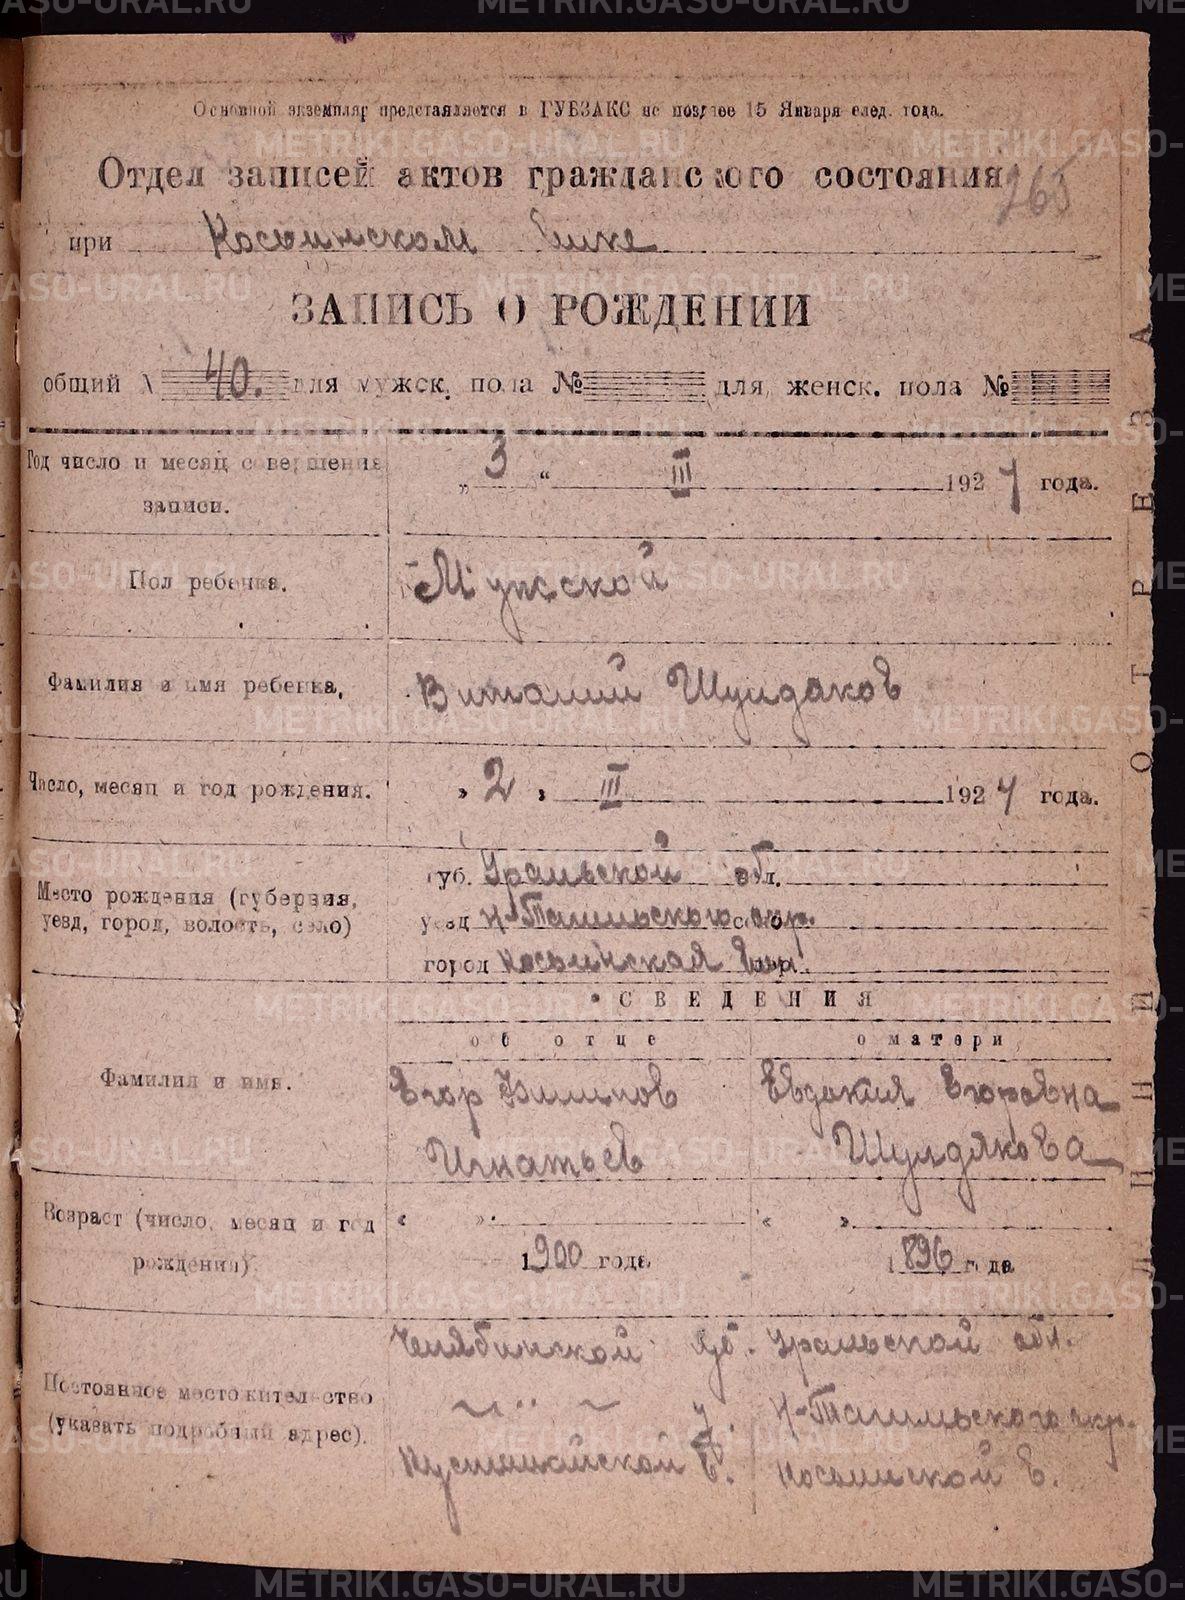 Основной экземпляр представляется в ГУБЗАКС не позднее 15 Января след. года.
Отдел записей актов гражданского состояния
265
при Косьинском Еике
ЗАПИСЬ О РОЖДЕНИИ
общий № 40. для мужск. пола № для женск. пола №
Год число и месяц совершения записи.
„ 3 “ III 1924 года.
Пол ребенка.
Мужской
Фамилия и имя ребенка,
Виталий Шулдаков
Число, месяц и год рождения.
„ 2 „ III 1924 года.
Место рождения (губерния,
уезд, город, волость, село)
губ. Уральской обл.
уезд Н-Тагильского окр.
город Косьинская
СВЕДЕНИЯ
об отце
о матери
Фамилия и имя.
Егор Филипов
Игнатьев
Евдокия Егоровна
Шулдякова
Возраст (число, месяц и год
рождения)
« ».
1900 года
« ».
1896 года
Постоянное местожительство
(указать подробный адрес).
Челябинской губ.
У.
В.
Уральской обл.
Н-Тагильского окр.
Косьинской В.
ЛИНИЯ ОТРЕЗА
METRIKI.GASO-URAL.RU